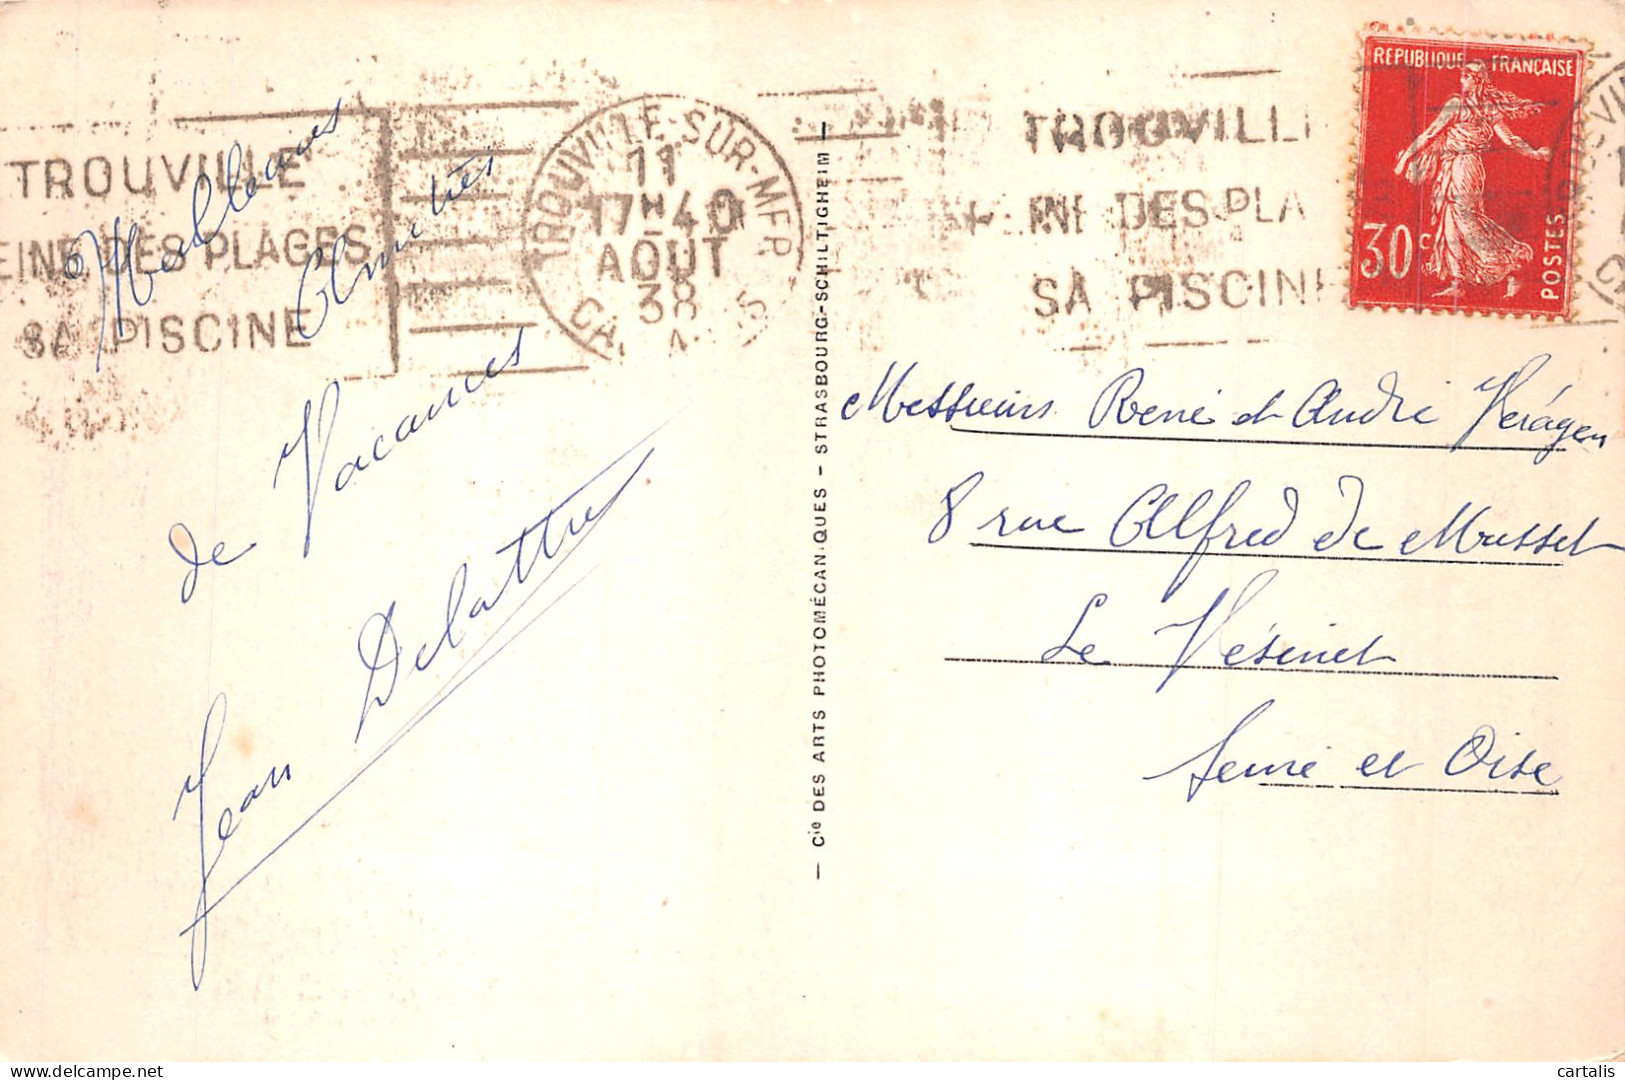 TROUVILLE
EINE DES PLAGES
SA PISCINE
TROUVILLE-SUR-MER
11
17H40
AOUT
38
TROUVILL
INE DES PLA
SA PISCIN
REPUBLIQUE FRANÇAISE
30c
POSTES
Meilleures
Amitiés
de Vacances
Jean Delattre
— Cie DES ARTS PHOTOMÉCANIQUES - STRASBOURG-SCHILTIGHEIM —
Messieurs René et André Verágen
8 rue Alfred de Musset
Le Vésinet
Seine et Oise
cartalis